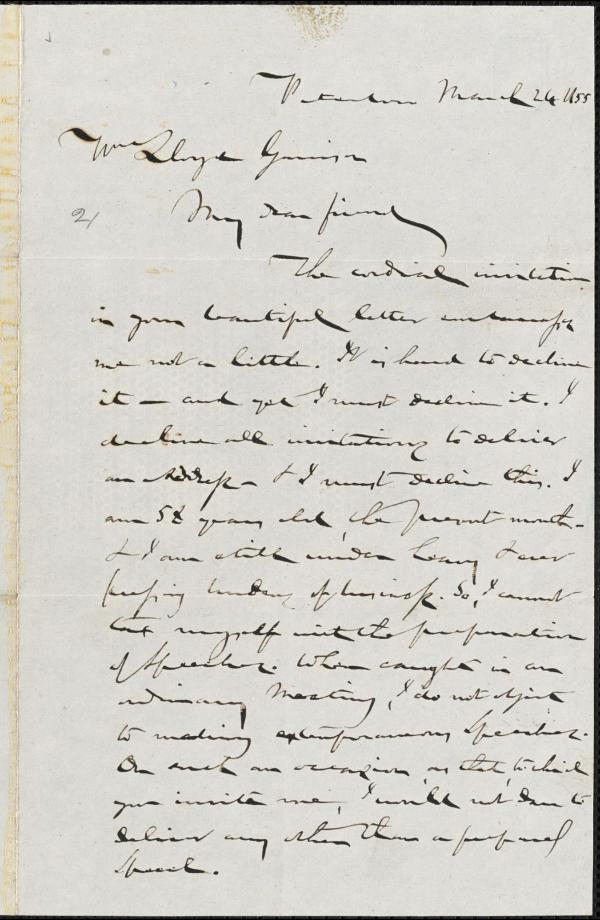 Peterboro March 24 1855
Wm Lloyd Garrison
2/
My dear friend,
The cordial invitation
in your beautiful letter embarrasses
me not a little. It is hard to decline
it — and yet I must decline it. I
decline all invitations to deliver
an Address — & I must decline this. I
am 58 years old, the present month —
& I am still under heavy & ever
pressing burdens of business. So, I cannot
tax myself with the preparation
of Speeches. When caught in an
ordinary Meeting, I do not object
to making extemporaneous Speeches.
On such an occasion, as that, to which
you invite me, I would not dare to
deliver any other than a prepared
Speech.